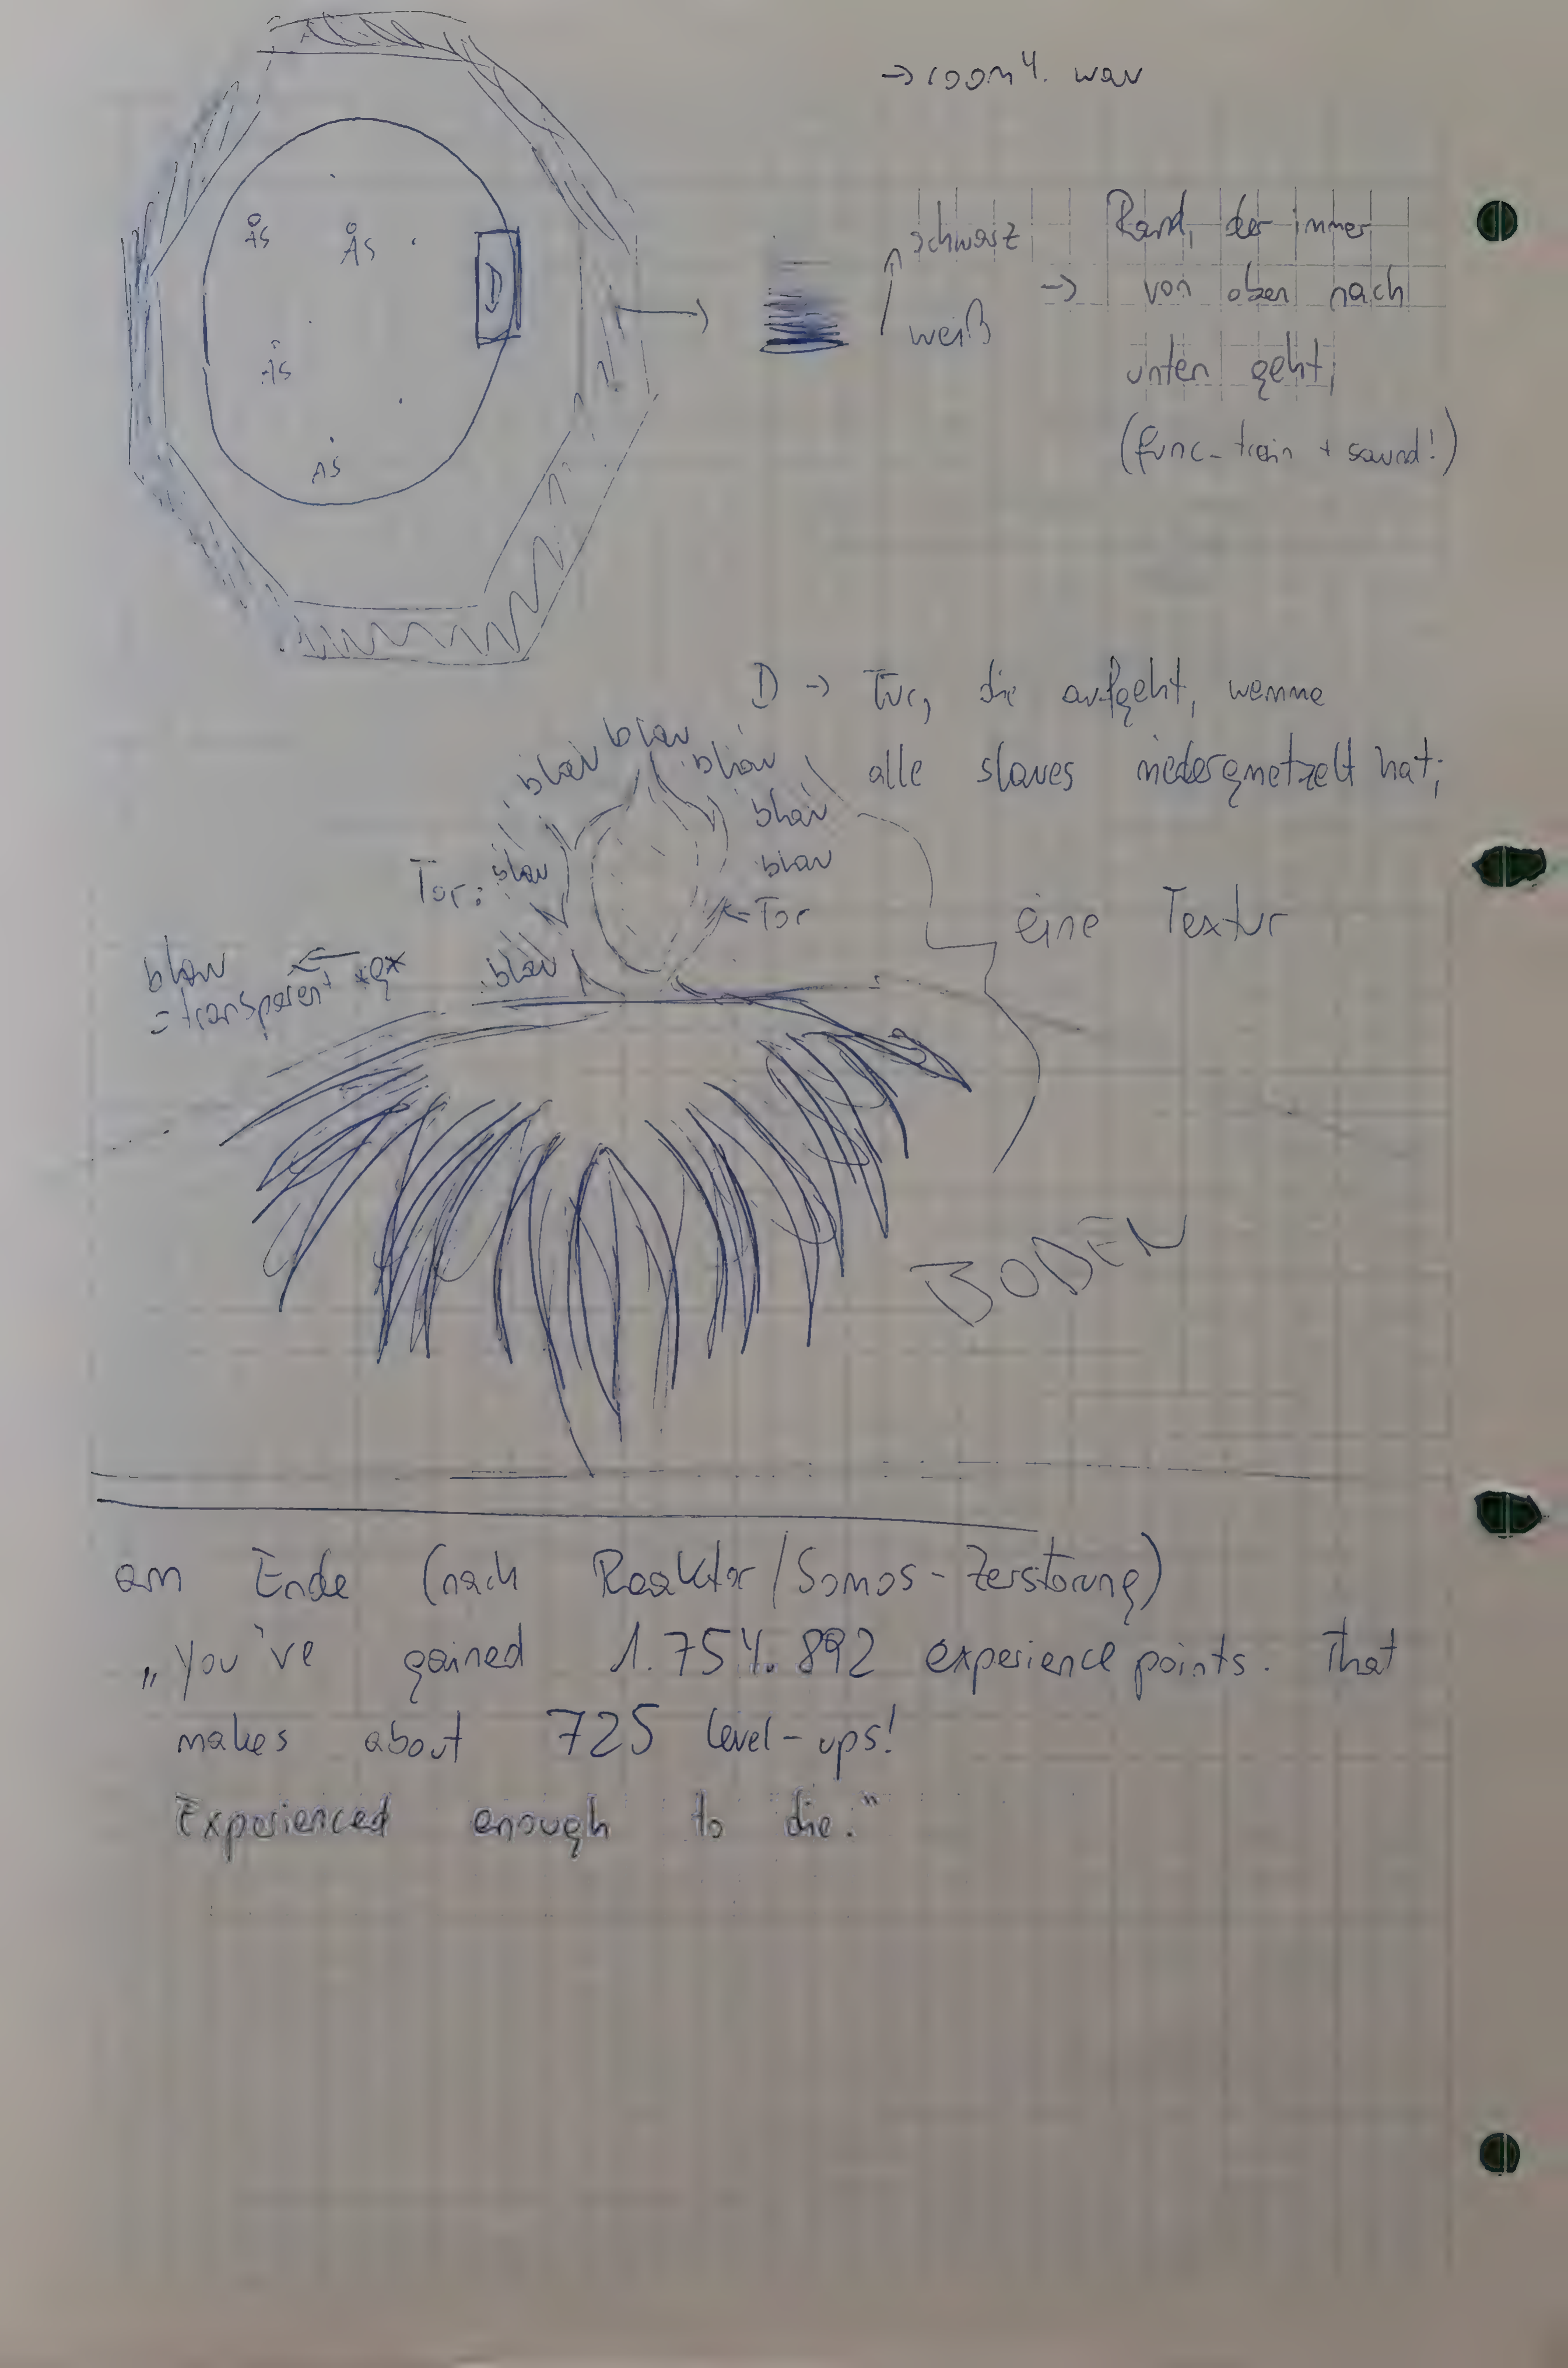 → room4. wav
ÅS
ÅS
ÅS
ÅS
D
schwarz
weiß
→ Rand, der immer
von oben nach
unten geht,
(func_train + sound!)
D → Tür, die aufgeht, wemme
alle slaves niedergmetzelt hat;
blau
blau
blau
blau
blau
Tor:
blau
← Tor
eine Textur
blau
blau
= transparent
BODEN
am Ende (nach Reaktor/Somos-Zerstörung)
„You've gained 1.754.892 experience points. That
makes about 725 level-ups!
Experienced enough to die."